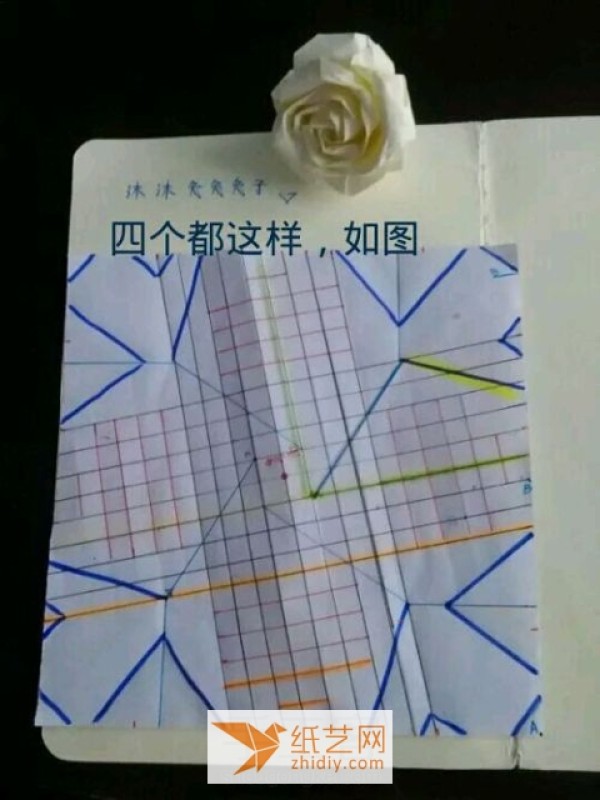 沐沐兔兔兔子
四个都这样，如图
B
A.
纸艺网
zhidiy.com